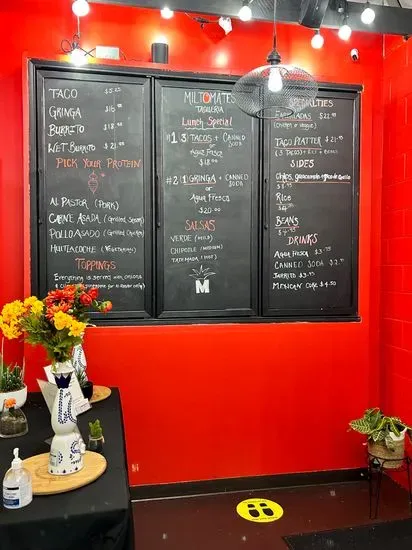 TACO $5.25
GRINGA $16.00
BURRITO $18.00
WET BURRITO $21.00
PICK YOUR PROTEIN
AL PASTOR (PORK)
CARNE ASADA (Grilled Steak)
POLLO ASADO (Grilled Chicken)
HUITLACOCHE (VEGETARIAN)
TOPPINGS
Everything is served with onions
MILTOMATES
TAQUERIA
Lunch Special
#1 3 TACOS + CANNED SODA
or
Agua Fresca
$18.00
#2 1 GRINGA + CANNED SODA
or
Agua Fresca
$20.00
SALSAS
VERDE (MILD)
CHIPOTLE (MEDIUM)
TATEMADA (HOT)
M
SPECIALTIES
(Chicken or Veggie)
TACO PLATTER $21.95
(3 TACOS + Rice + Beans)
SIDES
Chips, guacamole
Rice
BEANS
DRINKS
AGUA FRESCA
CANNED SODA
JARRITO $3.95
MEXICAN COKE $4.50